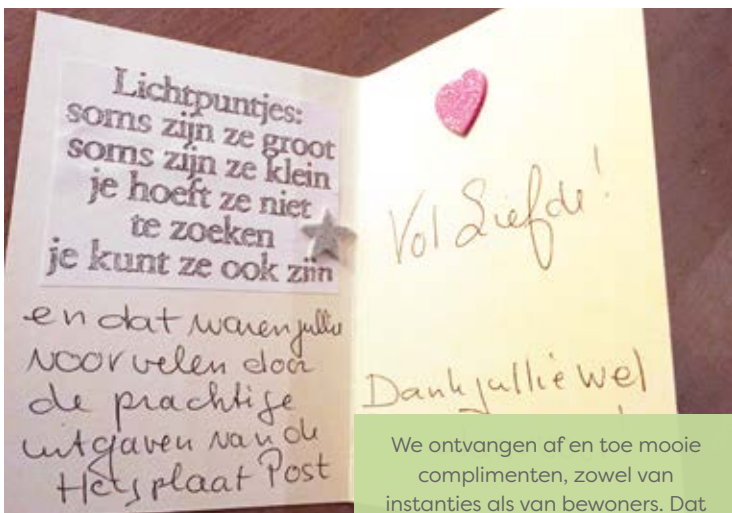 Lichtpuntjes:
soms zijn ze groot
soms zijn ze klein
je hoeft ze niet
te zoeken
je kunt ze ook zijn
en dat waren jullie
voor velen door
de prachtige
uitgaven van de
Heijplaat Post
Vol Liefde!
Dank jullie wel
We ontvangen af en toe mooie
complimenten, zowel van
instanties als van bewoners. Dat